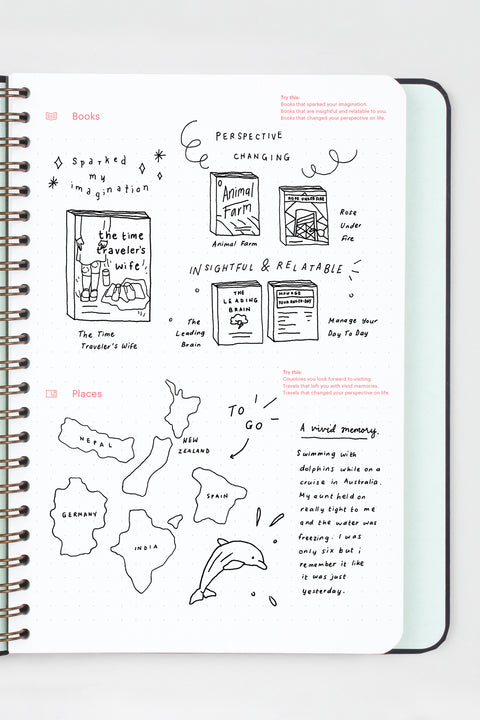 Try this:
Books that sparked your imagination.
Books that are insightful and relatable to you.
Books that changed your perspective on life.
Books
Sparked
my
imagination
the time
traveler's
wife
The Time
Traveler's Wife
PERSPECTIVE
CHANGING
Animal
Farm
Animal Farm
ROSE UNDER FIRE
Rose
Under
Fire
INSIGHTFUL & RELATABLE
THE
LEADING
BRAIN
The
Leading
Brain
MANAGE
YOUR DAY-TO-DAY
Manage Your
Day To Day
Try this:
Countries you look forward to visiting.
Travels that left you with vivid memories.
Travels that changed your perspective on life.
Places
TO
GO
NEPAL
NEW
ZEALAND
GERMANY
SPAIN
INDIA
A vivid memory.
Swimming with
dolphins while on a
cruise in Australia.
My aunt held on
really tight to me
and the water was
freezing. I was
only six but i
remember it like
it was just
yesterday.